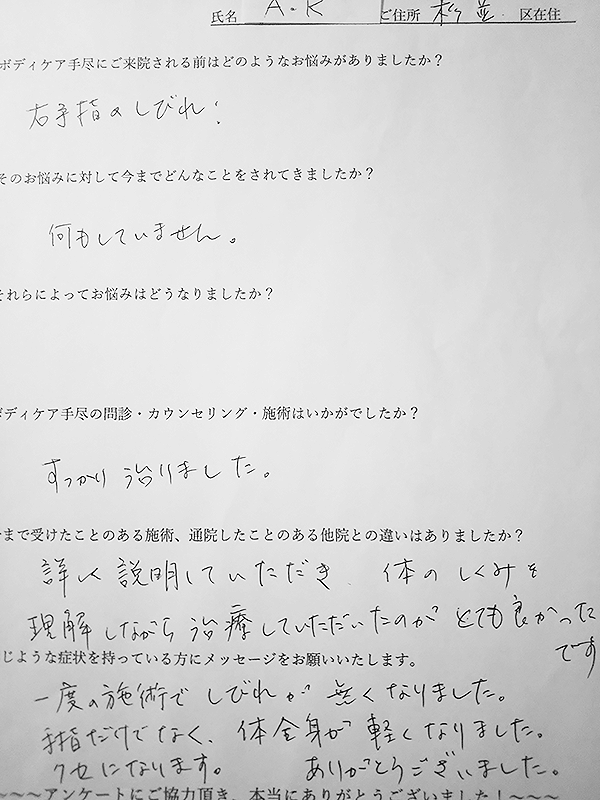 氏名 A.K ご住所 杉並 区在住
ボディケア手尽にご来院される前はどのようなお悩みがありましたか？
右手指のしびれ！
そのお悩みに対して今までどんなことをされてきましたか？
何もしていません。
それらによってお悩みはどうなりましたか？
ボディケア手尽の問診・カウンセリング・施術はいかがでしたか？
すっかり治りました。
まで受けたことのある施術、通院したことのある他院との違いはありましたか？
詳しく説明していただき、体のしくみを
理解しながら治療していただいたのがとても良かった
です
じような症状を持っている方にメッセージをお願いいたします。
一度の施術でしびれが無くなりました。
手指だけでなく、体全身が軽くなりました。
クセになります。 ありがとうございました。
～～～アンケートにご協力頂き、本当にありがとうございました！～～～